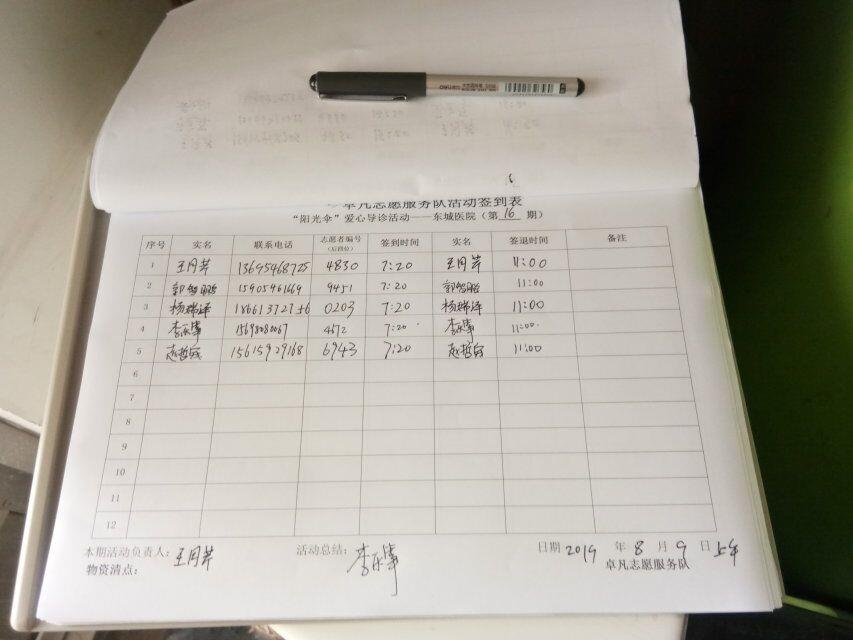 卓凡志愿服务队活动签到表
“阳光伞”爱心导诊活动——东城医院（第 16 期）
序号 实名 联系电话 志愿者编号（后四位） 签到时间 实名 签退时间 备注
1 王月芹 13695468725 4830 7:20 王月芹 11:00
2 15905461669 9451 7:20 11:00
3 杨瑞泽 0203 7:20 杨瑞泽 11:00
4 15698080067 4572 7:20 11:00
5 赵哲成 15615929168 6943 7:20 赵哲成 11:00
6
7
8
9
10
11
12
本期活动负责人：王月芹 活动总结： 日期 2019 年 8 月 9 日上午
物资清点： 卓凡志愿服务队